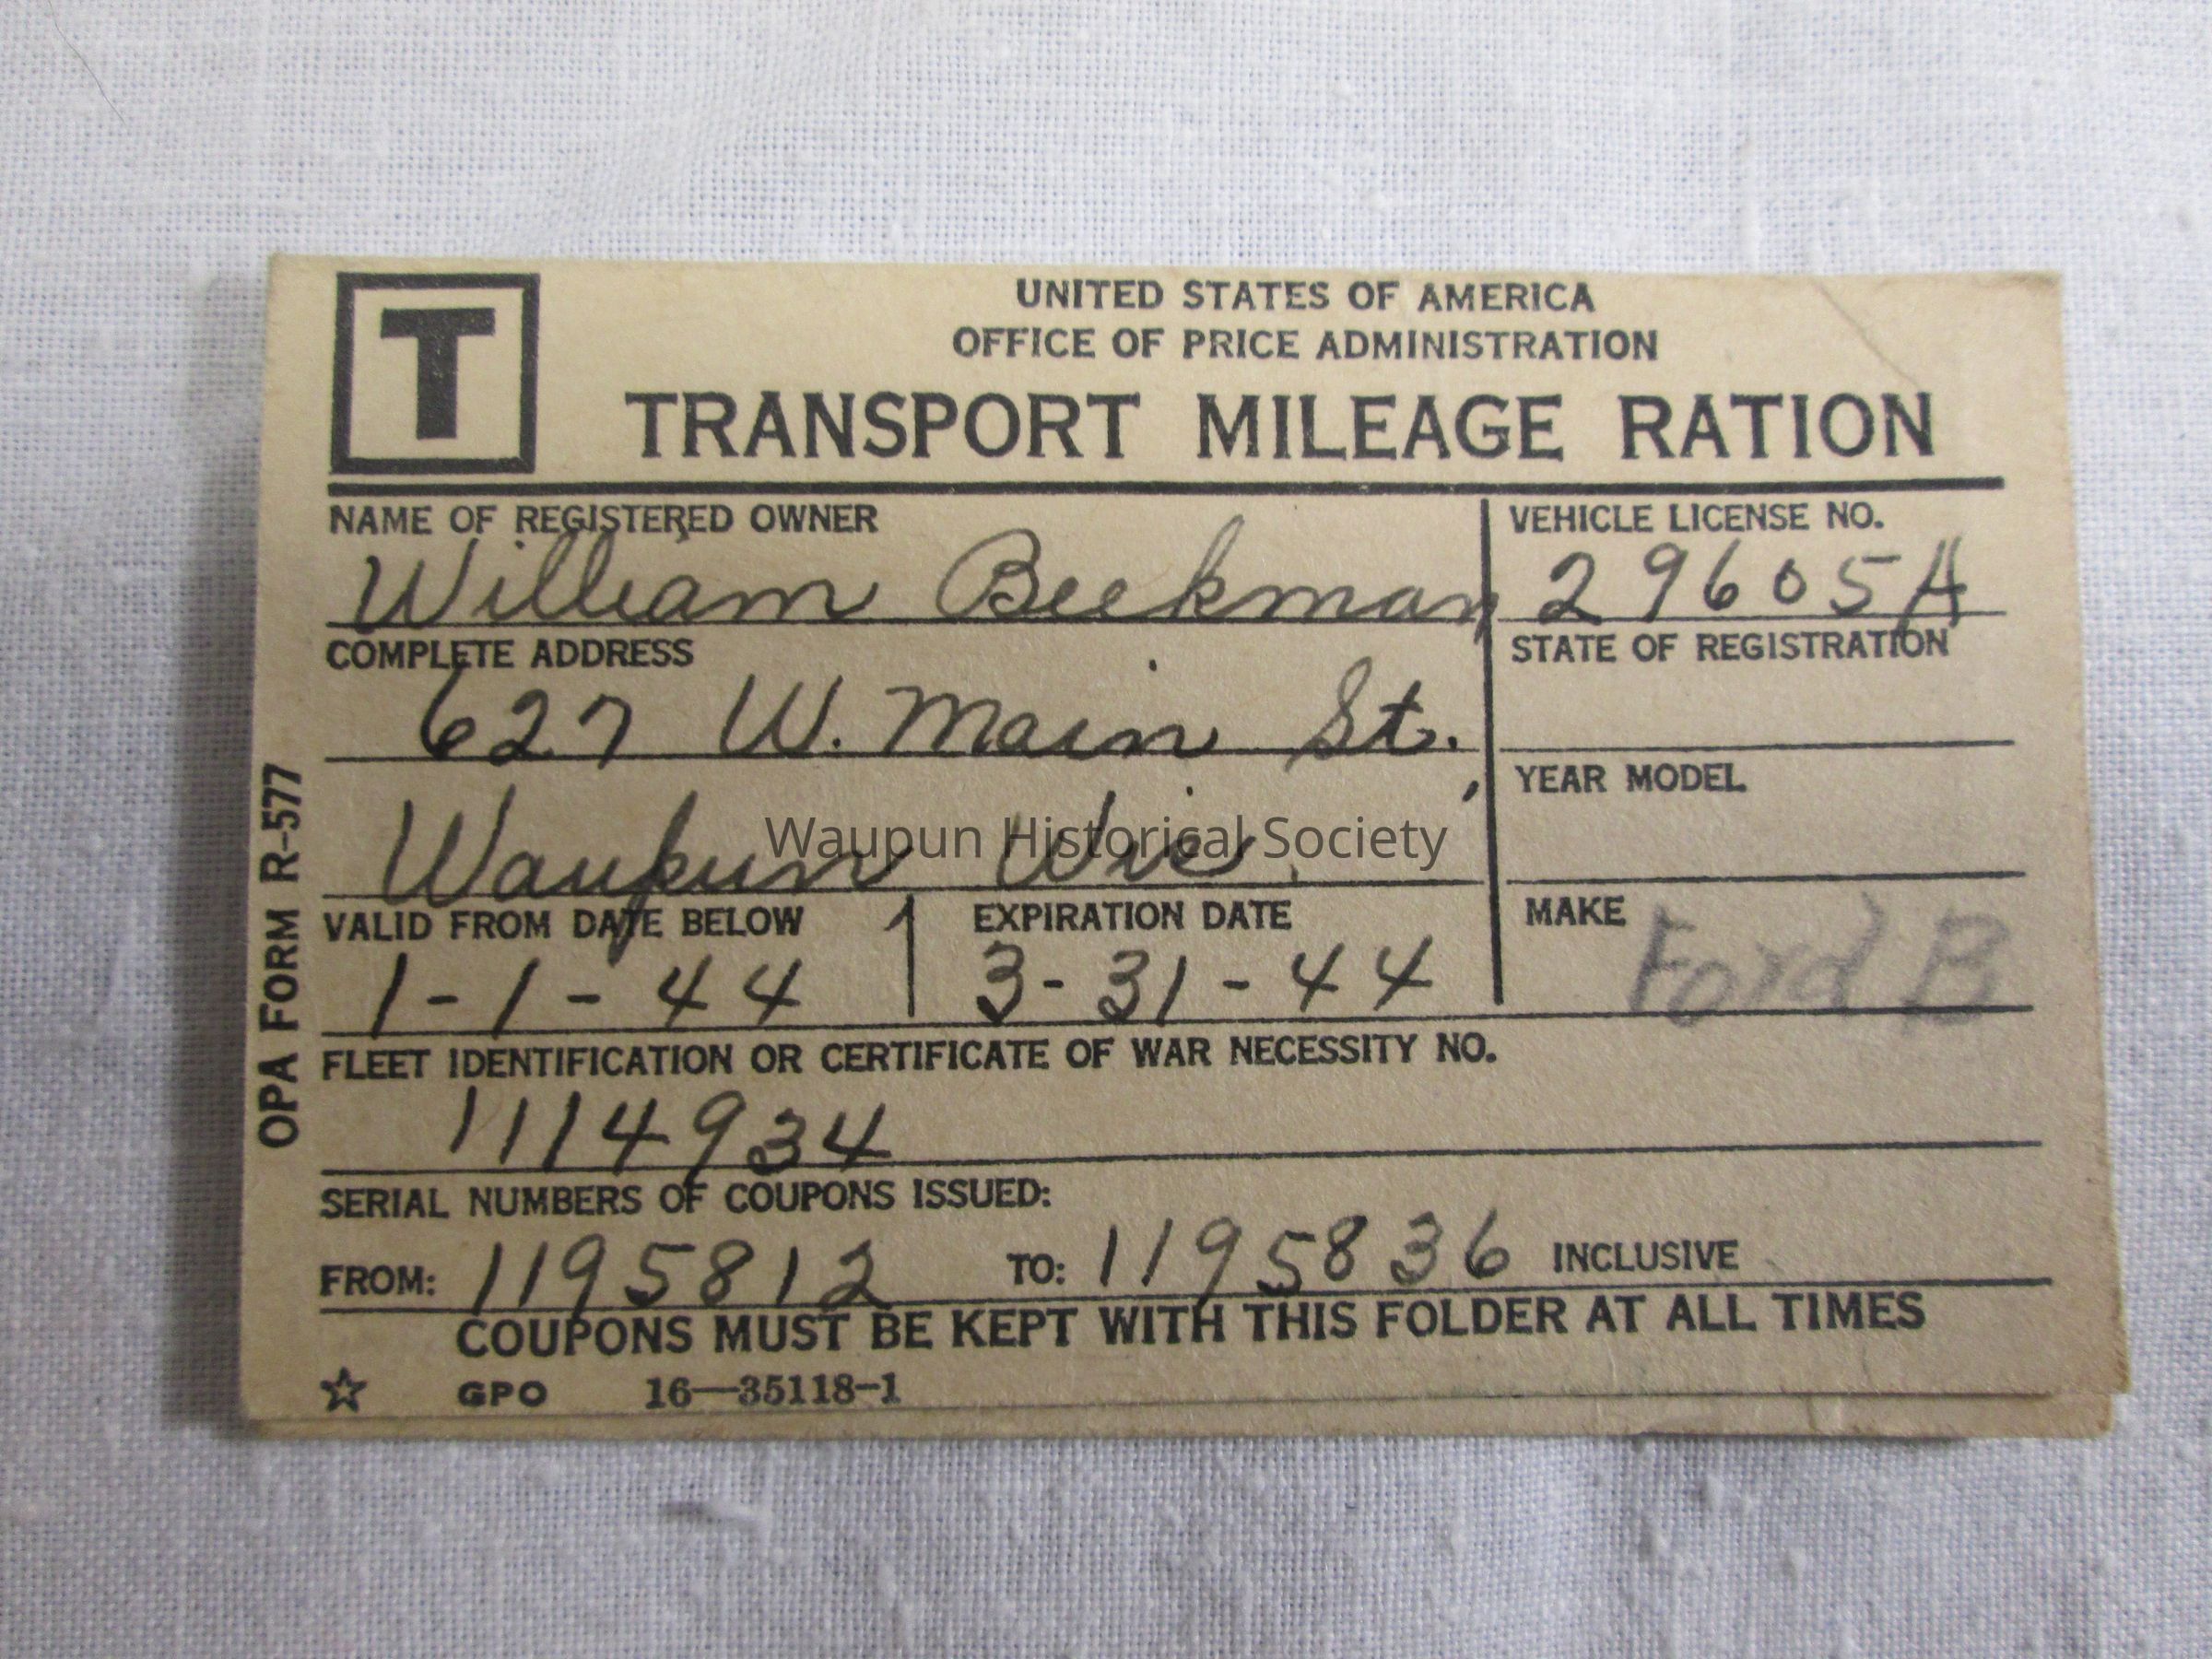 T
UNITED STATES OF AMERICA
OFFICE OF PRICE ADMINISTRATION
TRANSPORT MILEAGE RATION
NAME OF REGISTERED OWNER
William Beekman
VEHICLE LICENSE NO.
29605A
COMPLETE ADDRESS
627 W. Main St.,
STATE OF REGISTRATION
Waupun Wis.
YEAR MODEL
Waupun Historical Society
VALID FROM DATE BELOW
1-1-44
EXPIRATION DATE
3-31-44
MAKE
Ford B
FLEET IDENTIFICATION OR CERTIFICATE OF WAR NECESSITY NO.
1114934
SERIAL NUMBERS OF COUPONS ISSUED:
FROM: 1195812 TO: 1195836 INCLUSIVE
COUPONS MUST BE KEPT WITH THIS FOLDER AT ALL TIMES
GPO 16—35118-1
OPA FORM R-577